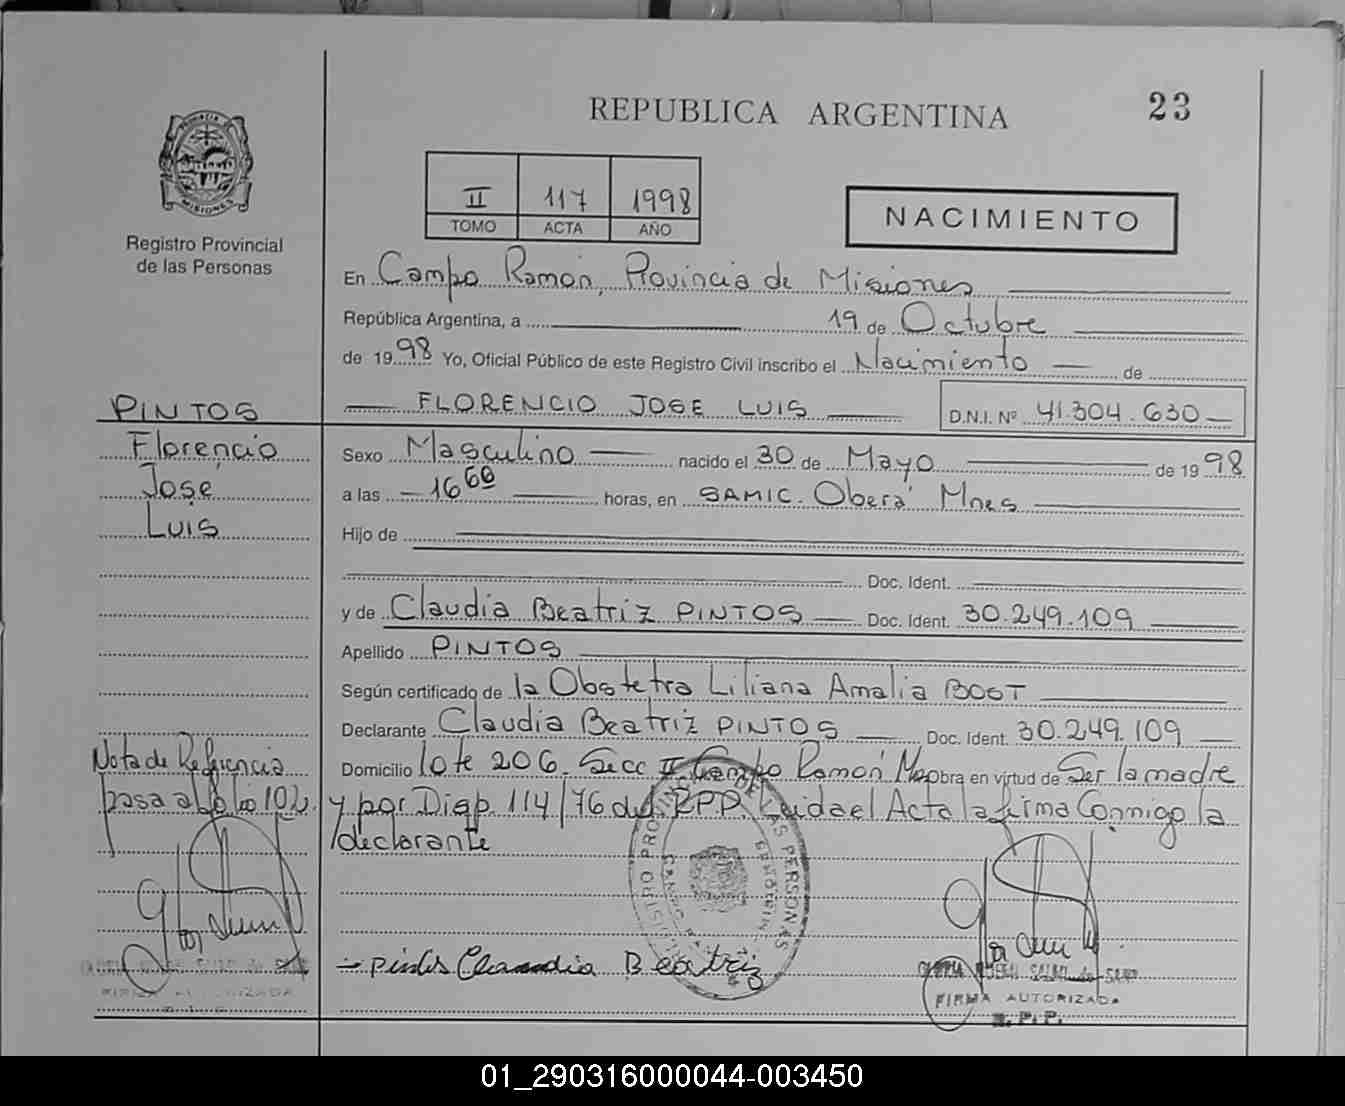 REPUBLICA ARGENTINA
23
PROVINCIA DE MISIONES
Registro Provincial
de las Personas
II 117 1998
TOMO ACTA AÑO
NACIMIENTO
En Campo Ramón, Provincia de Misiones
República Argentina, a 19 de Octubre
de 1998 Yo, Oficial Público de este Registro Civil inscribo el Nacimiento de
FLORENCIO JOSE LUIS D.N.I. Nº 41.304.630
PINTOS
Florencio
José
Luis
Sexo Masculino nacido el 30 de Mayo de 1998
a las 16 horas, en SAMIC. Oberá Mnes
Hijo de
Doc. Ident.
y de Claudia Beatriz PINTOS Doc. Ident. 30.249.109
Apellido PINTOS
Según certificado de la Obstetra Liliana Amalia BOST
Declarante Claudia Beatriz PINTOS Doc. Ident. 30.249.109
Domicilio lote 206. Secc II. Campo Ramón obra en virtud de Ser la madre
y por Disp. 114/76 del R.P.P. Leida el Acta la firma Conmigo la
declarante
Nota de Referencia
pasa a folio
Pintos Claudia Beatriz
REGISTRO PROVINCIAL DE LAS PERSONAS
FIRMA AUTORIZADA
R. P. P.
FIRMA AUTORIZADA
01_290316000044-003450